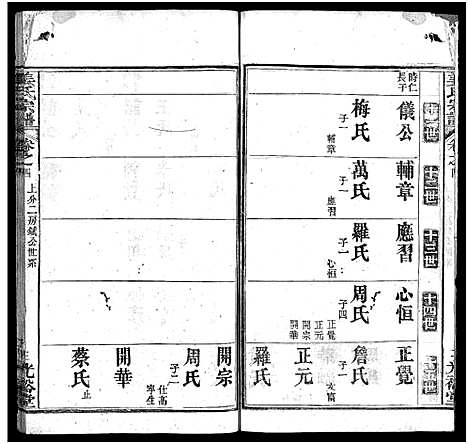 姜氏宗譜
卷之四
十一世
十二世
十三世
十四世
十五世
光裕堂
時仁長子
儀公
梅氏
子一
輔章
輔章
萬氏
子一
應習
應習
羅氏
子一
心恒
心恒
周氏
子四
正覺
正元
開宗
開華
正覺
詹氏
子一
文富
正元
羅氏
開宗
周氏
子二
仕高
學生
開華
蔡氏
止
姜氏宗譜
卷之四
上分二房鉞公世系
光裕堂